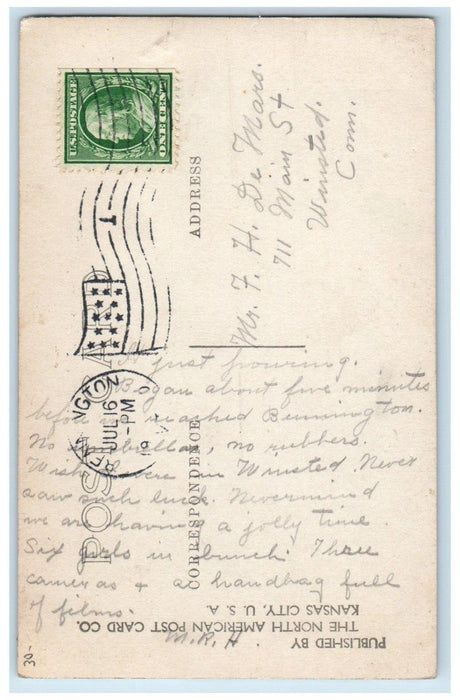 U.S. POSTAGE
ONE CENT
JUL 16
PM
POST CARD
ADDRESS
Mr. F. H. De Mars.
711 Main St
Winsted.
Conn.
CORRESPONDENCE
just pouring.
Began about five minutes
before reached Bennington.
No umbrellas, no rubbers.
Wish I were in Winsted. Never
saw such luck. Nevermind
we are having a jolly time.
Six girls in bunch. Three
cameras + a handbag full
of films.
M. R. H.
PUBLISHED BY
THE NORTH AMERICAN POST CARD CO.
KANSAS CITY, U. S. A.